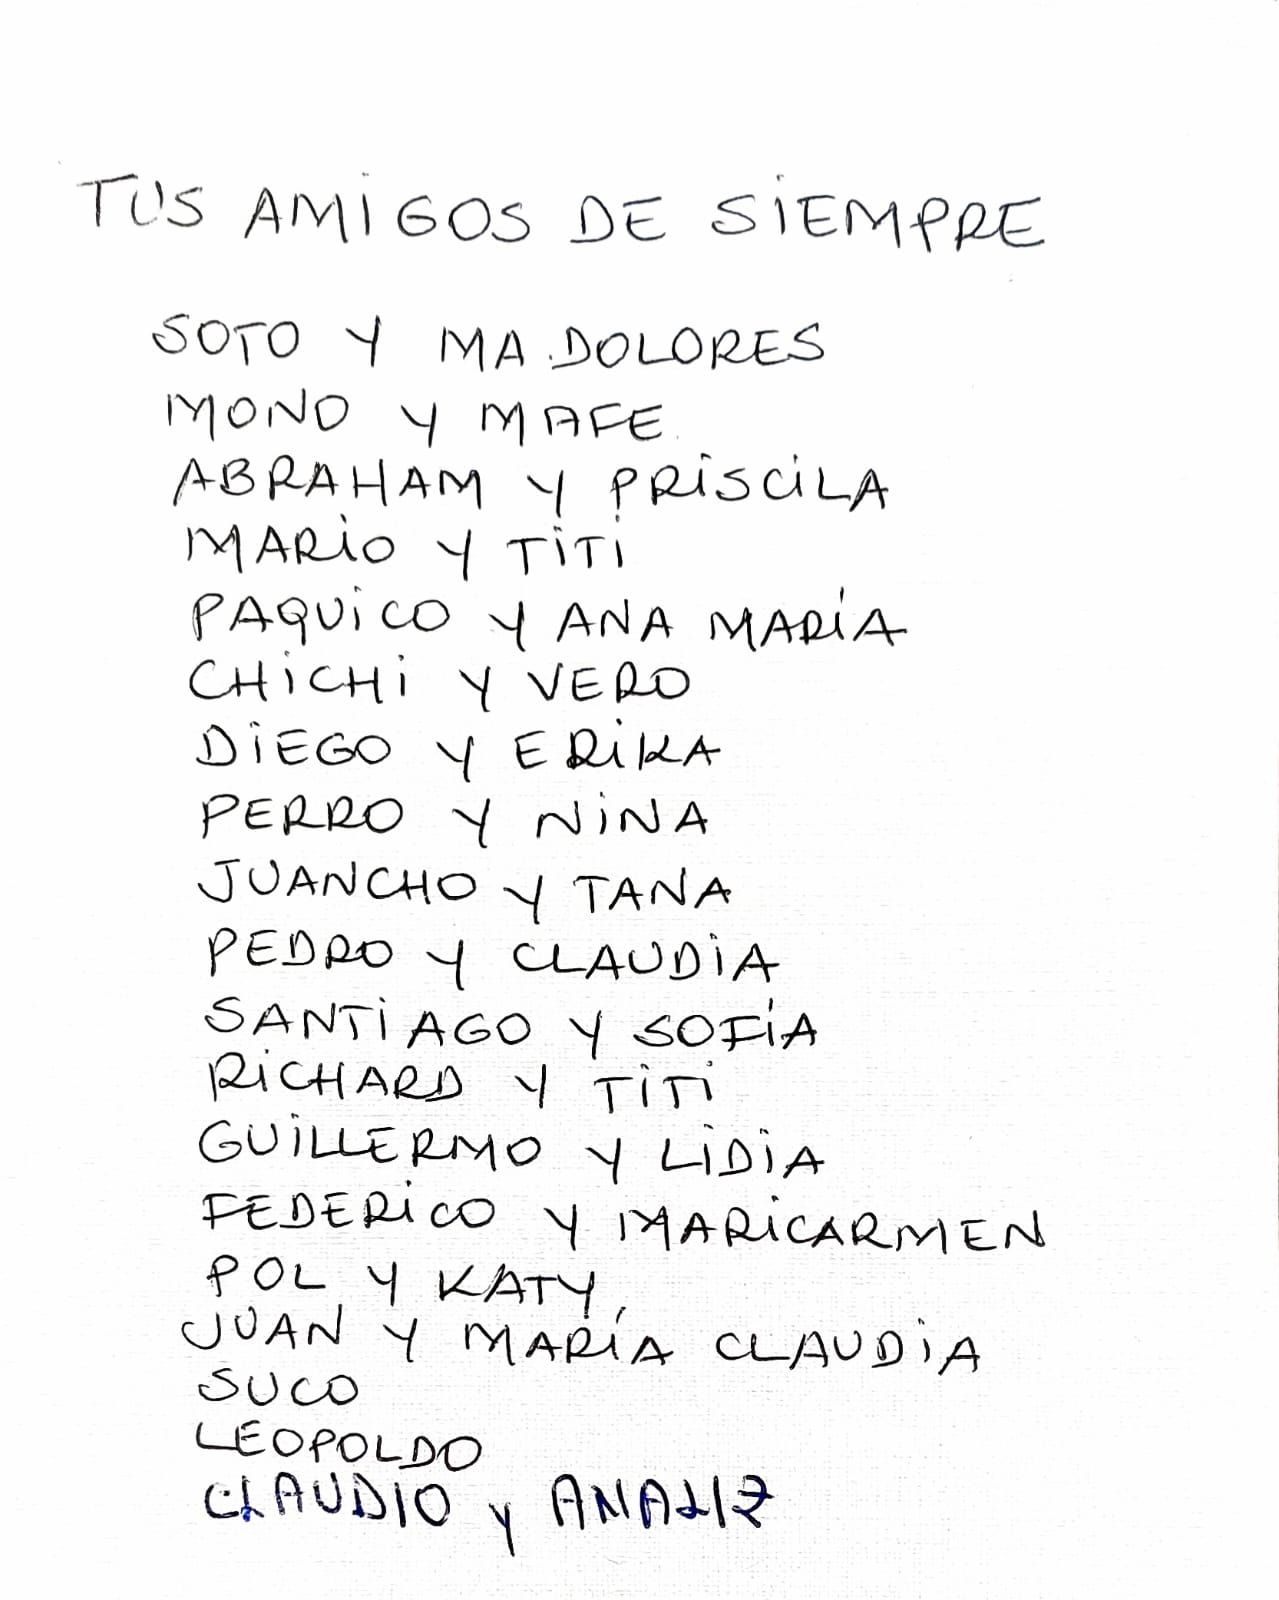 TUS AMIGOS DE SIEMPRE
SOTO Y MA. DOLORES
MONO Y MAFE
ABRAHAM Y PRISCILA
MARIO Y TITI
PAQUICO Y ANA MARÍA
CHICHI Y VERO
DIEGO Y ERIKA
PERRO Y NINA
JUANCHO Y TANA
PEDRO Y CLAUDIA
SANTIAGO Y SOFÍA
RICHARD Y TITI
GUILLERMO Y LIDIA
FEDERICO Y MARICARMEN
POL Y KATY
JUAN Y MARÍA CLAUDIA
SUCO
LEOPOLDO
CLAUDIO Y ANALIZ